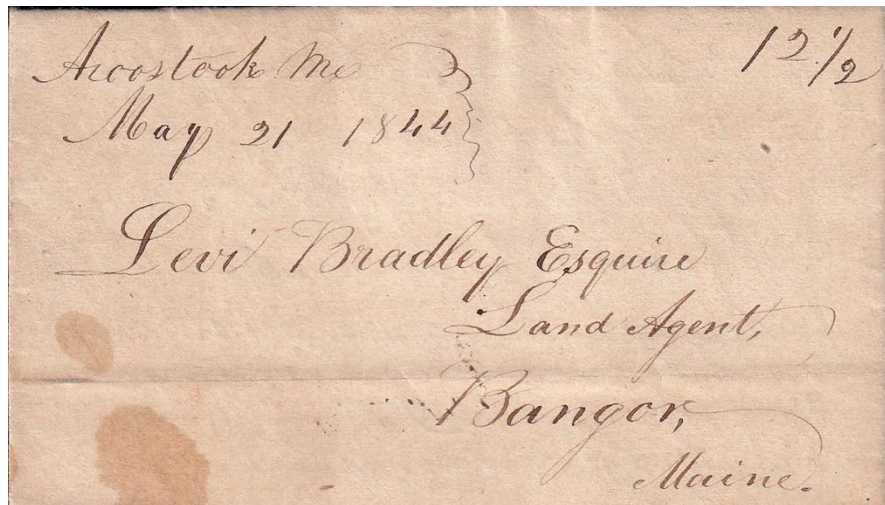 Aroostook Me
12 1/2
May 21 1844
Levi Bradley Esquire
Land Agent,
Bangor,
Maine.